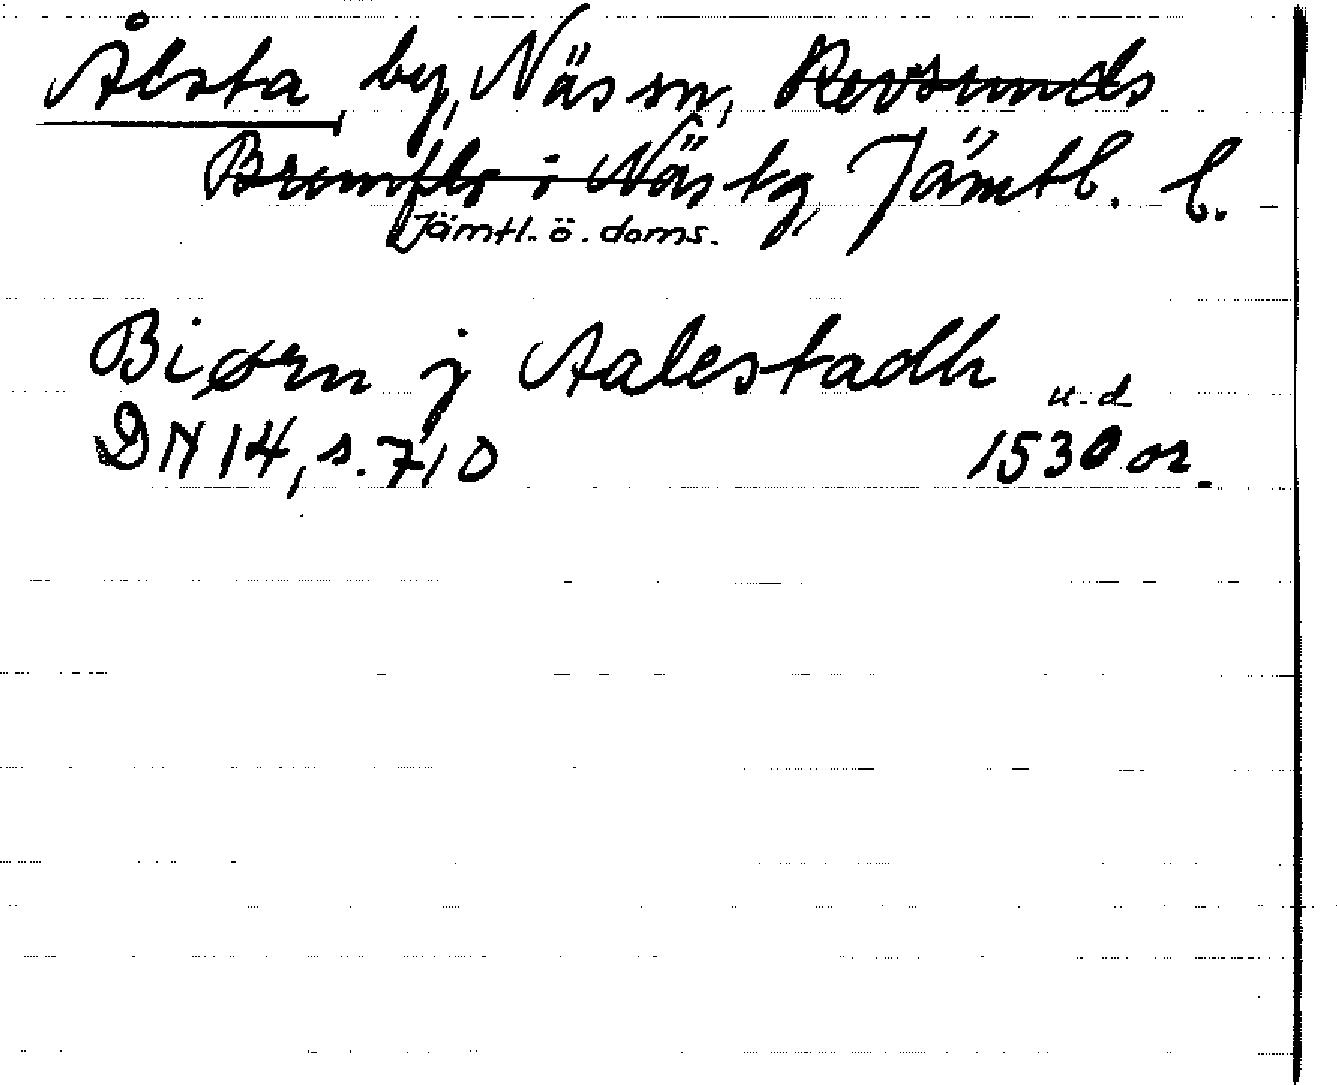 Ålsta, by, Näs sn, Revsunds
Brunflo i Näs tg, Jämtl. l.
Jämtl. ö. doms.
Biørn j Aalestadh
u. d
DN 14, s. 710 1530 or.